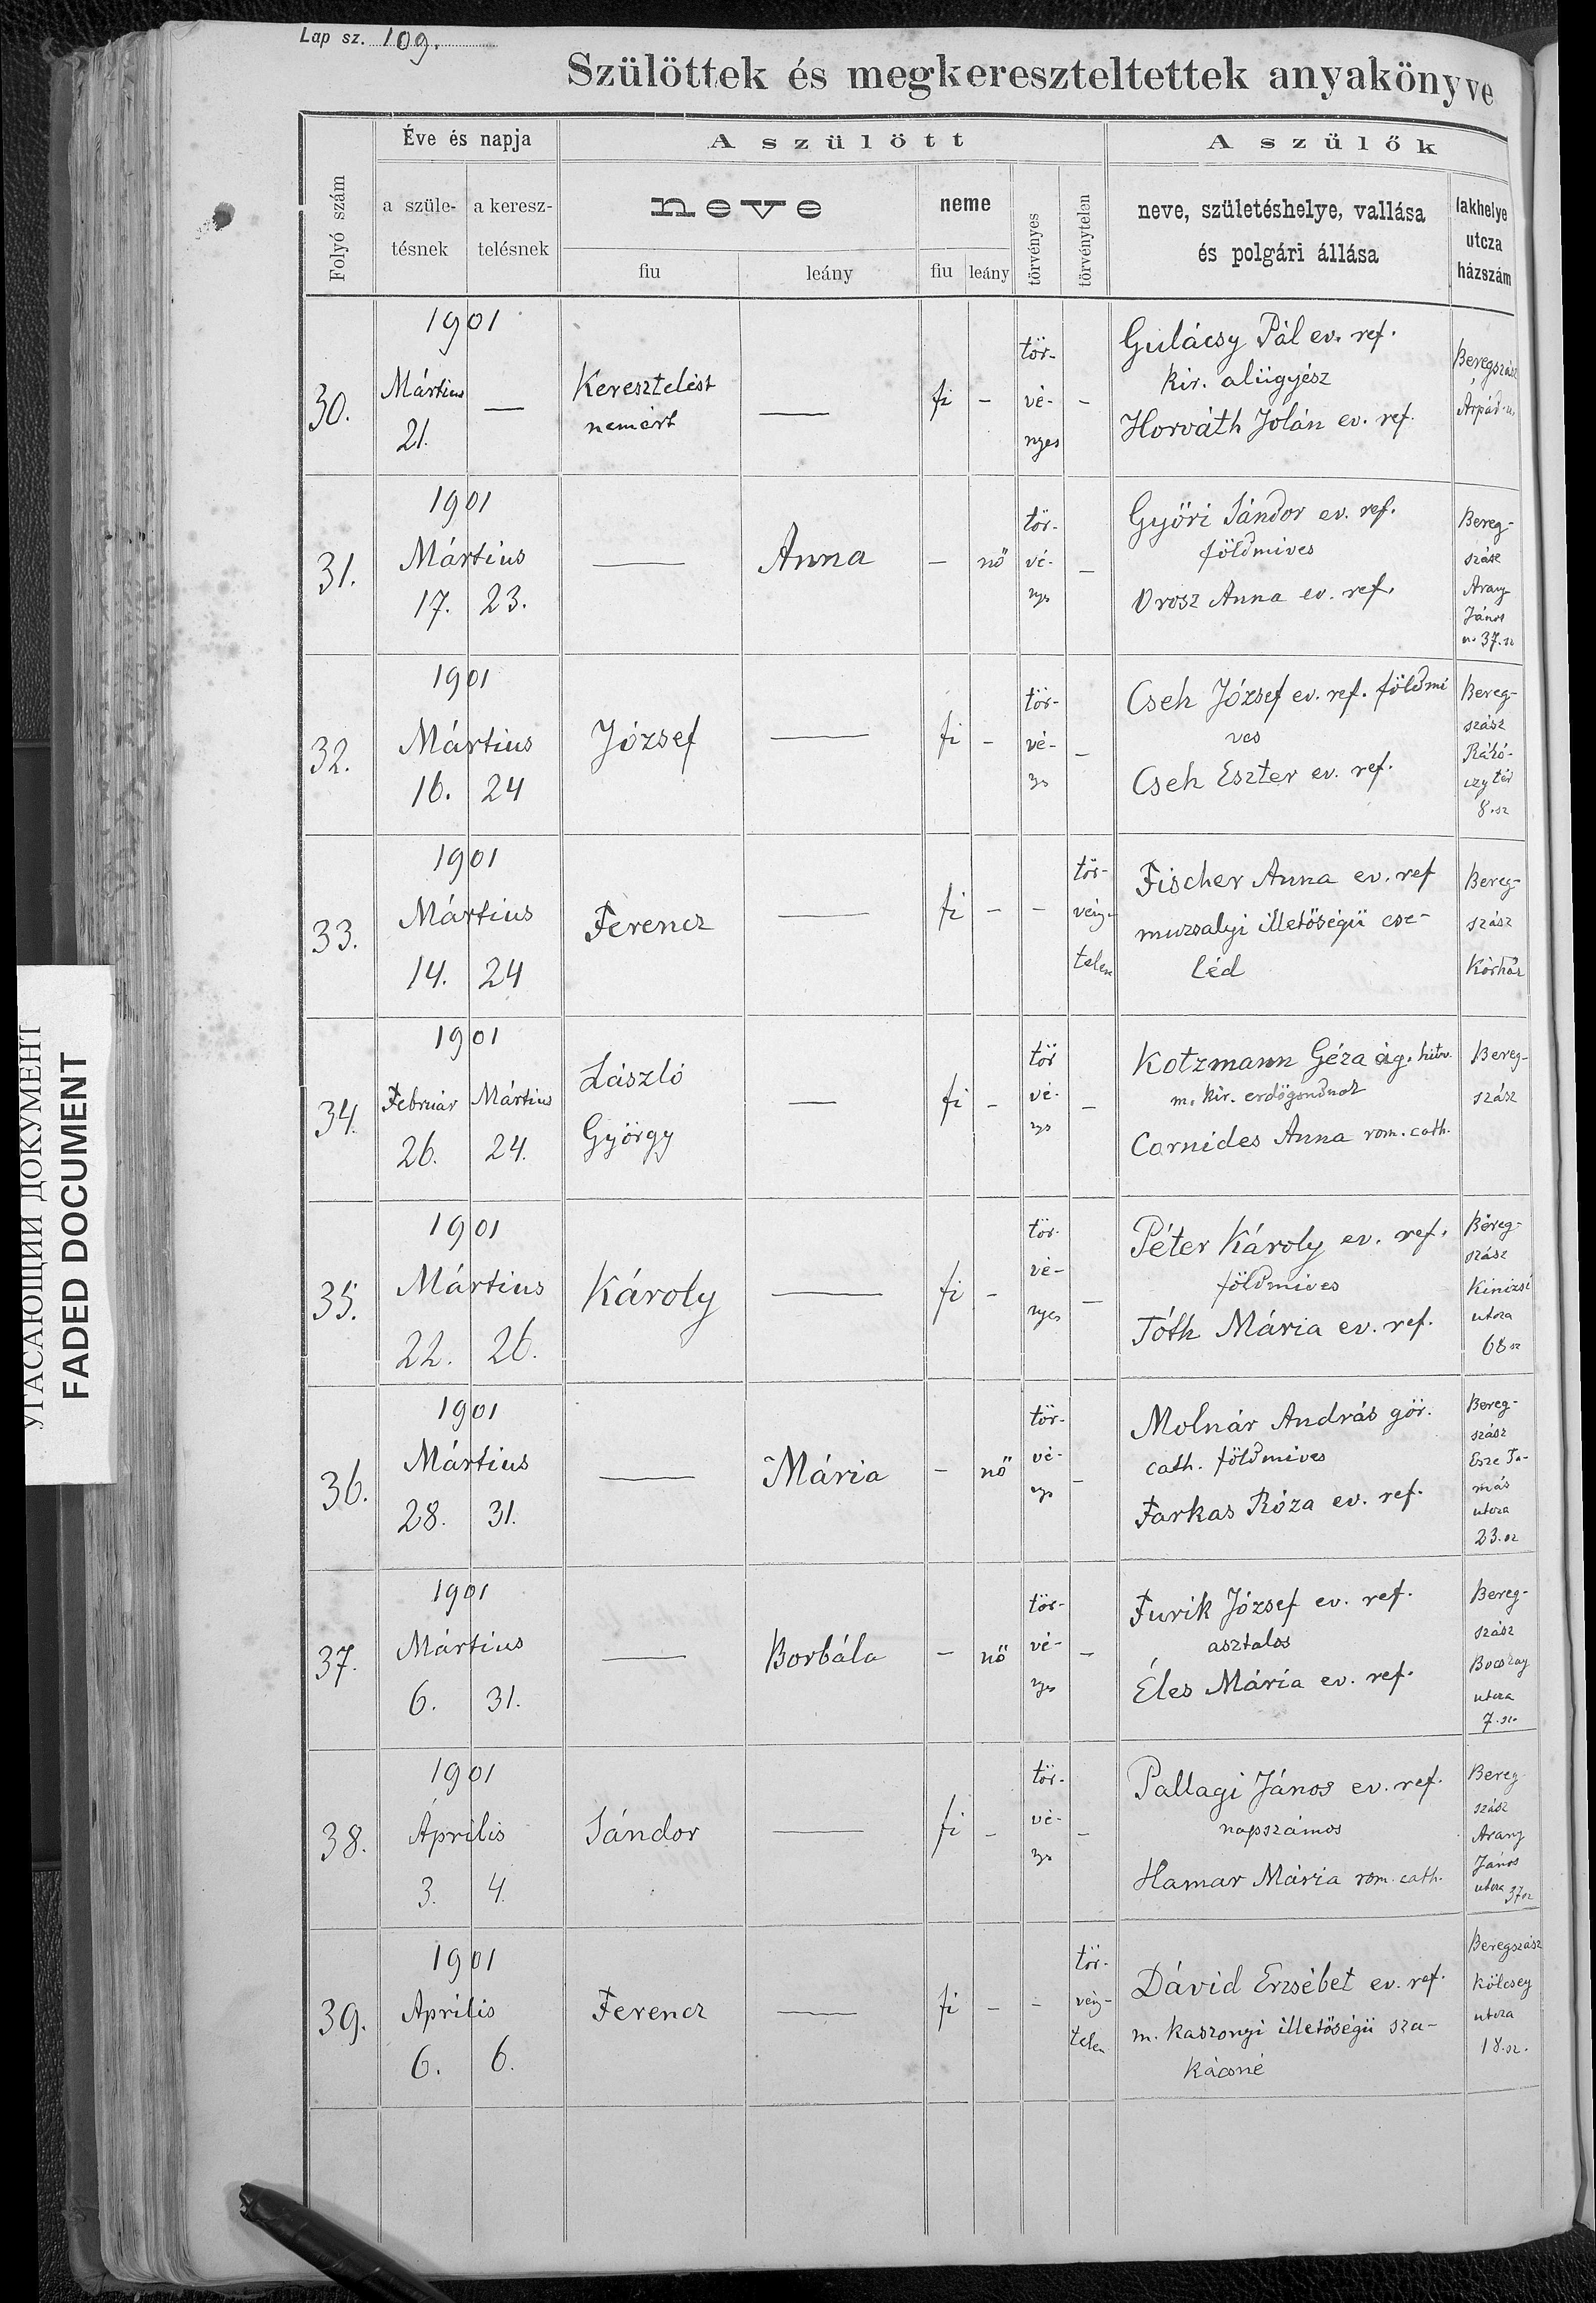 Lap sz. 109.
Szülöttek és megkereszteltettek anyakönyve
Folyó szám
Éve és napja
a szüle-
tésnek
a keresz-
telésnek
A szülött
neve
fiu
leány
neme
fiu
leány
törvényes
törvénytelen
A szülők
neve, születéshelye, vallása
és polgári állása
lakhelye
utcza
házszám
30.
1901
Mártius
21.
—
Keresztelést
nem ért
—
fi
-
tör-
vé-
nyes
-
Gulácsy Pál ev. ref.
kir. alügyész
Horváth Jolán ev. ref.
Beregszász
Árpád-u.
31.
1901
Mártius
17. 23.
—
Anna
-
nő
tör-
vé-
nys
-
Győri Sándor ev. ref.
földmives
Orosz Anna ev. ref.
Bereg-
szász
Arany
János
u. 37. sz
32.
1901
Mártius
16. 24
József
—
fi
-
tör-
vé-
ys
-
Cseh József ev. ref. földmi
ves
Cseh Eszter ev. ref.
Bereg-
szász
Rákó-
czy tér
8. sz
33.
1901
Mártius
14. 24
Ferencz
—
fi
-
-
tör-
vény-
telen
Fischer Anna ev. ref
muzsalyi illetőségü cse-
léd
Bereg-
szász
Kórház
34.
1901
Február Mártius
26. 24.
László
György
—
fi
-
tör
vé-
ys
-
Kotzmann Géza ág. hitv.
m. kir. erdőgondnok
Cornides Anna rom. cath.
Bereg-
szász
35.
1901
Mártius
22. 26.
Károly
—
fi
-
tör-
vé-
nyes
-
Péter Károly ev. ref.
földmives
Tóth Mária ev. ref.
Bereg-
szász
Kinizsi
utcza
68 sz
36.
1901
Mártius
28. 31.
—
Mária
-
nő
tör-
vé-
nys
-
Molnár András gör.
cath. földmives
Farkas Róza ev. ref.
Bereg-
szász
Esze Ta-
más
utcza
23. sz
37.
1901
Mártius
6. 31.
—
Borbála
-
nő
tör-
vé-
nys
-
Furik József ev. ref.
asztalos
Éles Mária ev. ref.
Bereg-
szász
Bocskay
utcza
7. sz.
38.
1901
Április
3. 4.
Sándor
—
fi
-
tör-
vé-
ys
-
Pallagi János ev. ref.
napszámos
Hamar Mária rom. cath.
Bereg
szász
Arany
János
utcza 37 sz
39.
1901
Április
6. 6.
Ferencz
—
fi
-
-
tör-
vény-
telen
Dávid Erzsébet ev. ref.
m. kaszonyi illetőségü sza-
kácsné
Beregszász
Kölcsey
utcza
18. sz.
УГАСАЮЩИЙ ДОКУМЕНТ
FADED DOCUMENT